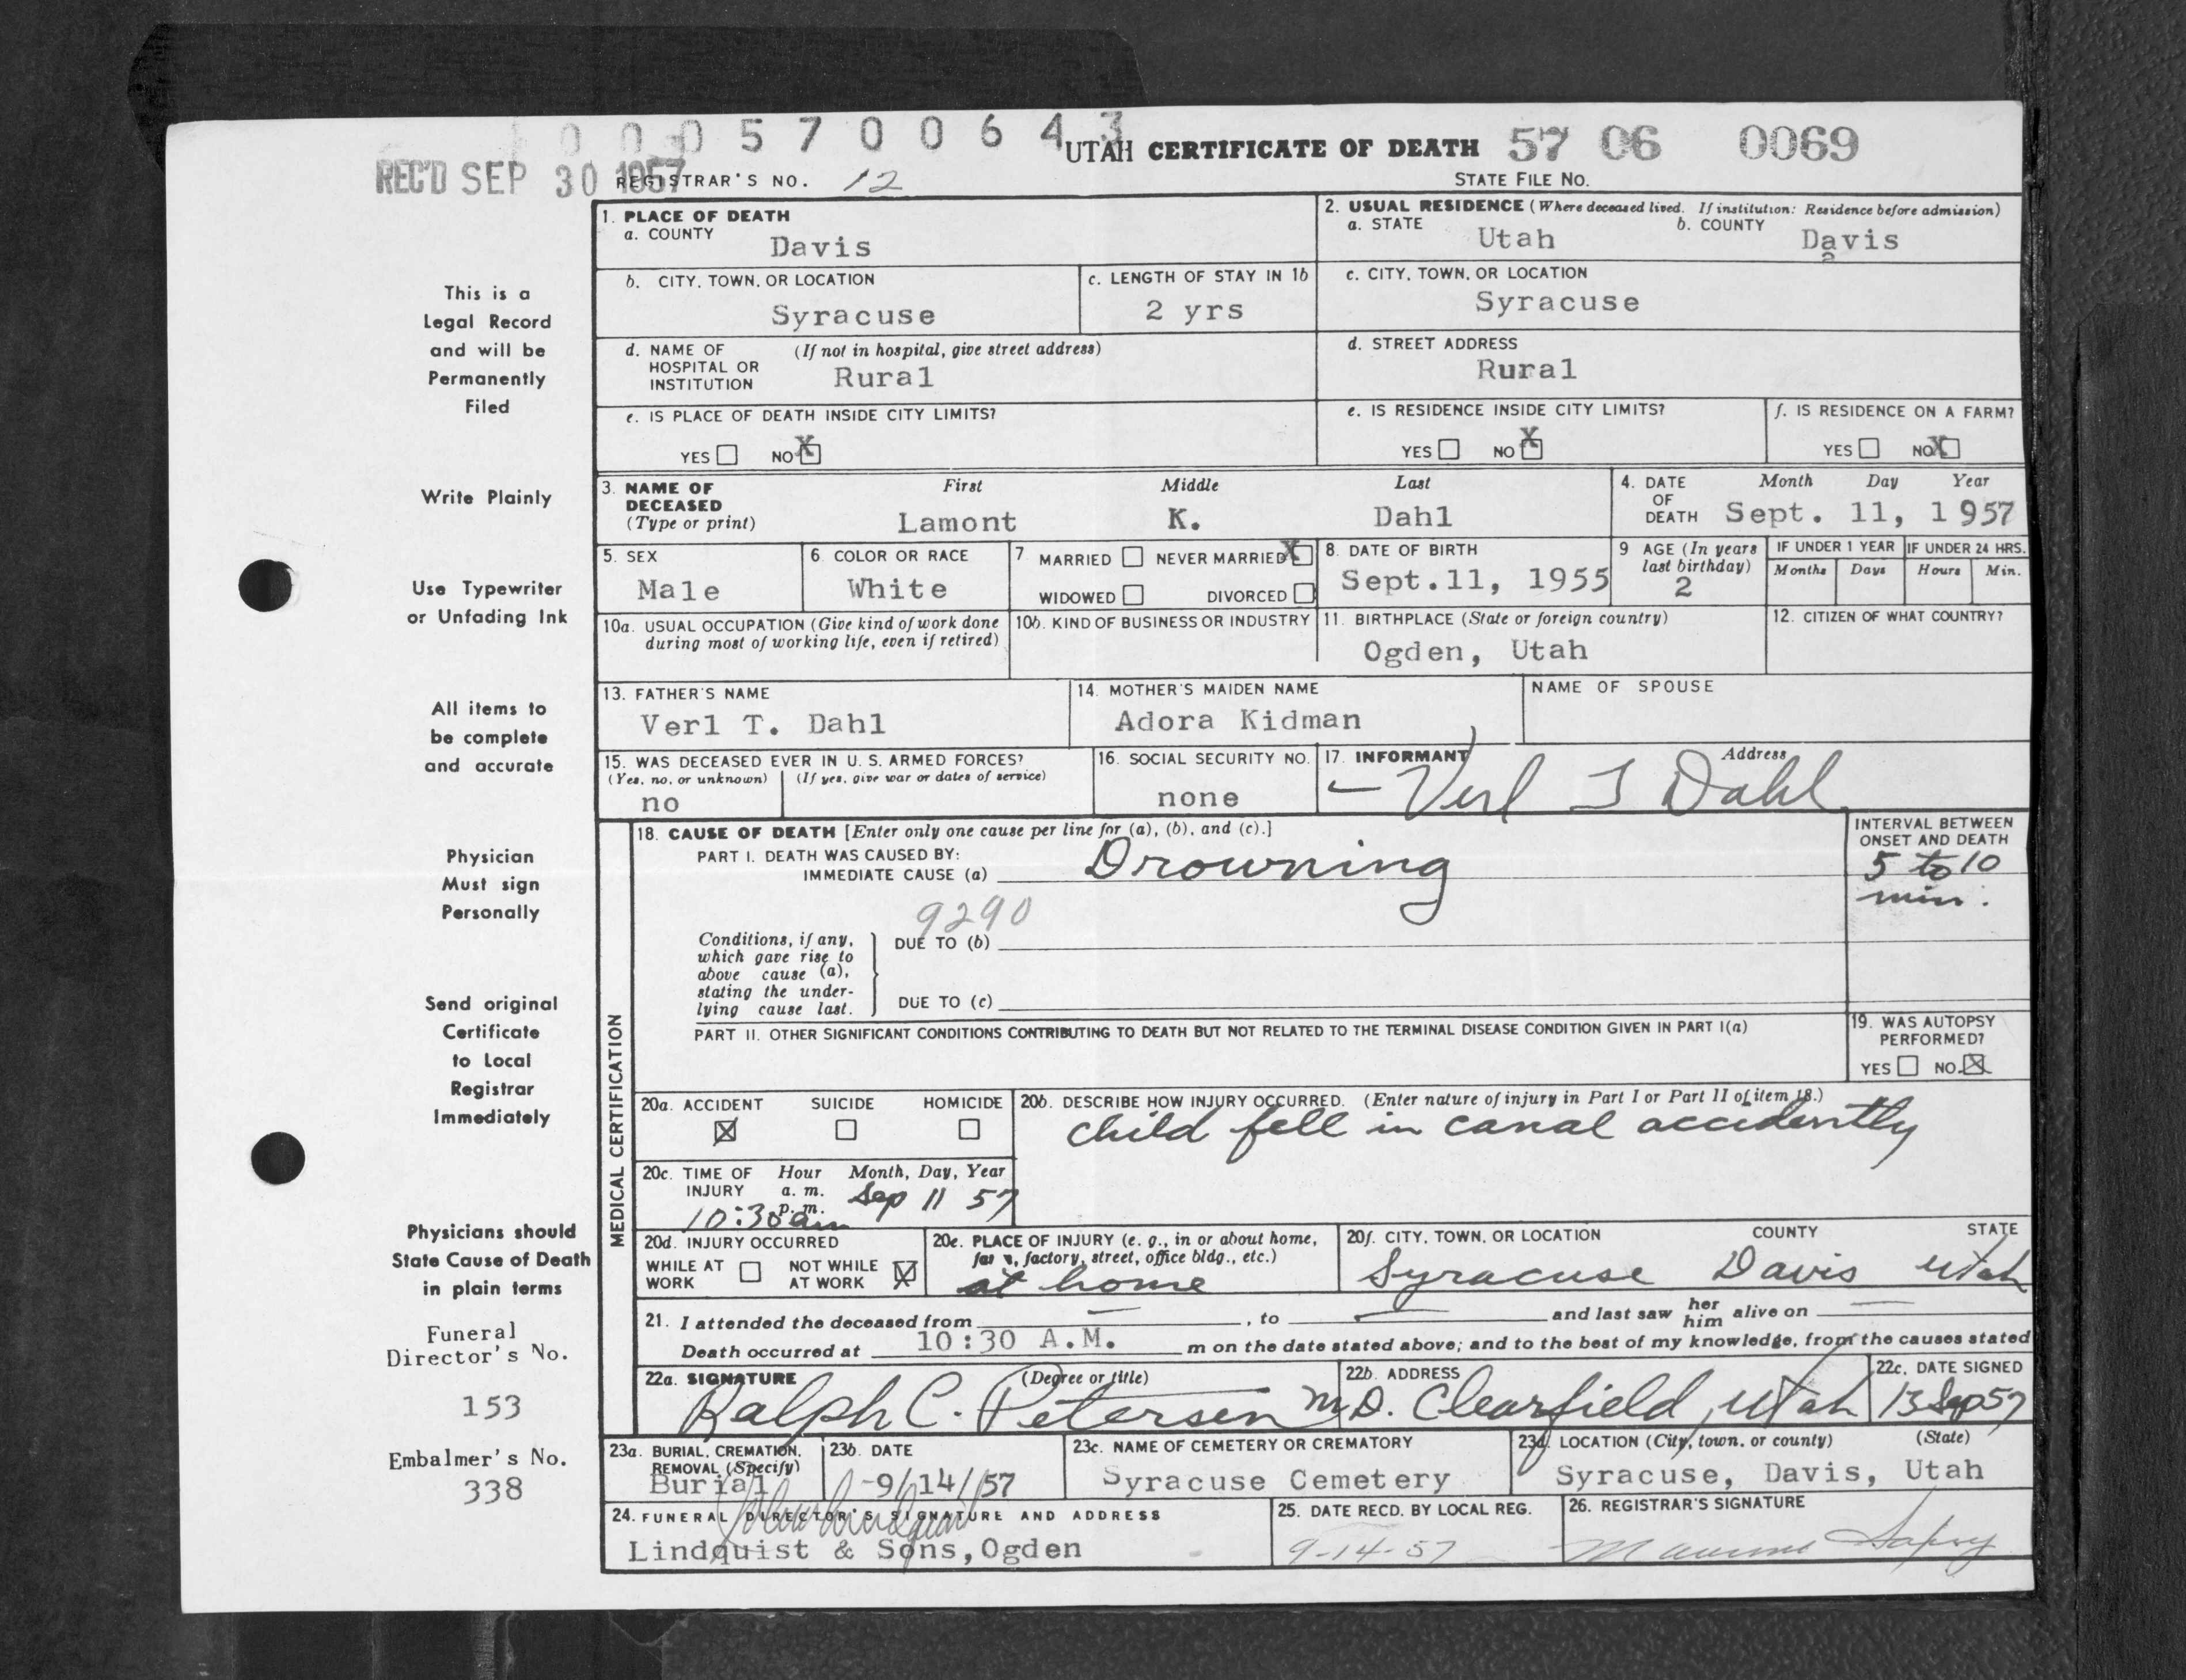 0005700643
UTAH CERTIFICATE OF DEATH 57 06 0069
REC'D SEP 30 1957 REGISTRAR'S NO. 12 STATE FILE NO.
1. PLACE OF DEATH
a. COUNTY
Davis
2. USUAL RESIDENCE (Where deceased lived. If institution: Residence before admission)
a. STATE Utah b. COUNTY Davis
2
b. CITY, TOWN, OR LOCATION
Syracuse
c. LENGTH OF STAY IN 1b
2 yrs
c. CITY, TOWN, OR LOCATION
Syracuse
d. NAME OF (If not in hospital, give street address)
HOSPITAL OR
INSTITUTION Rural
d. STREET ADDRESS
Rural
e. IS PLACE OF DEATH INSIDE CITY LIMITS?
YES NO X
e. IS RESIDENCE INSIDE CITY LIMITS?
YES NO X
f. IS RESIDENCE ON A FARM?
YES NO X
3. NAME OF First Middle Last
DECEASED
(Type or print) Lamont K. Dahl
4. DATE Month Day Year
OF
DEATH Sept. 11, 1957
5. SEX
Male
6. COLOR OR RACE
White
7 MARRIED NEVER MARRIED X
WIDOWED DIVORCED
8. DATE OF BIRTH
Sept.11, 1955
9 AGE (In years
last birthday)
2
IF UNDER 1 YEAR
Months Days
IF UNDER 24 HRS.
Hours Min.
10a. USUAL OCCUPATION (Give kind of work done
during most of working life, even if retired)
10b. KIND OF BUSINESS OR INDUSTRY
11. BIRTHPLACE (State or foreign country)
Ogden, Utah
12. CITIZEN OF WHAT COUNTRY?
13. FATHER'S NAME
Verl T. Dahl
14. MOTHER'S MAIDEN NAME
Adora Kidman
NAME OF SPOUSE
15. WAS DECEASED EVER IN U. S. ARMED FORCES?
(Yes, no, or unknown) (If yes, give war or dates of service)
no
16. SOCIAL SECURITY NO.
none
17. INFORMANT Address
Verl T Dahl
MEDICAL CERTIFICATION
18. CAUSE OF DEATH [Enter only one cause per line for (a), (b), and (c).]
PART I. DEATH WAS CAUSED BY:
IMMEDIATE CAUSE (a) Drowning
INTERVAL BETWEEN
ONSET AND DEATH
5 to 10
min.
9290
Conditions, if any,
which gave rise to
above cause (a),
stating the under-
lying cause last.
DUE TO (b)
DUE TO (c)
PART II. OTHER SIGNIFICANT CONDITIONS CONTRIBUTING TO DEATH BUT NOT RELATED TO THE TERMINAL DISEASE CONDITION GIVEN IN PART I(a)
19. WAS AUTOPSY
PERFORMED?
YES NO. X
20a. ACCIDENT SUICIDE HOMICIDE
X
20b. DESCRIBE HOW INJURY OCCURRED. (Enter nature of injury in Part I or Part II of item 18.)
child fell in canal accidently
20c. TIME OF Hour Month, Day, Year
INJURY a. m. Sep 11 57
p. m.
10:30 am
20d. INJURY OCCURRED
WHILE AT NOT WHILE X
WORK AT WORK
20e. PLACE OF INJURY (e. g., in or about home,
factory, street, office bldg., etc.)
at home
20f. CITY, TOWN, OR LOCATION COUNTY STATE
Syracuse Davis Utah
21. I attended the deceased from — , to — and last saw her him alive on —
Death occurred at 10:30 A.M. m on the date stated above; and to the best of my knowledge, from the causes stated
22a. SIGNATURE (Degree or title)
Ralph C. Petersen M.D.
22b. ADDRESS
Clearfield, Utah
22c. DATE SIGNED
13 Sep 57
23a. BURIAL, CREMATION,
REMOVAL (Specify)
Burial
23b. DATE
9/14/57
23c. NAME OF CEMETERY OR CREMATORY
Syracuse Cemetery
23d. LOCATION (City, town, or county) (State)
Syracuse, Davis, Utah
24. FUNERAL DIRECTOR'S SIGNATURE AND ADDRESS
Lindquist & Sons, Ogden
25. DATE RECD. BY LOCAL REG.
9-14-57
26. REGISTRAR'S SIGNATURE
This is a
Legal Record
and will be
Permanently
Filed
Write Plainly
Use Typewriter
or Unfading Ink
All items to
be complete
and accurate
Physician
Must sign
Personally
Send original
Certificate
to Local
Registrar
Immediately
Physicians should
State Cause of Death
in plain terms
Funeral
Director's No.
153
Embalmer's No.
338